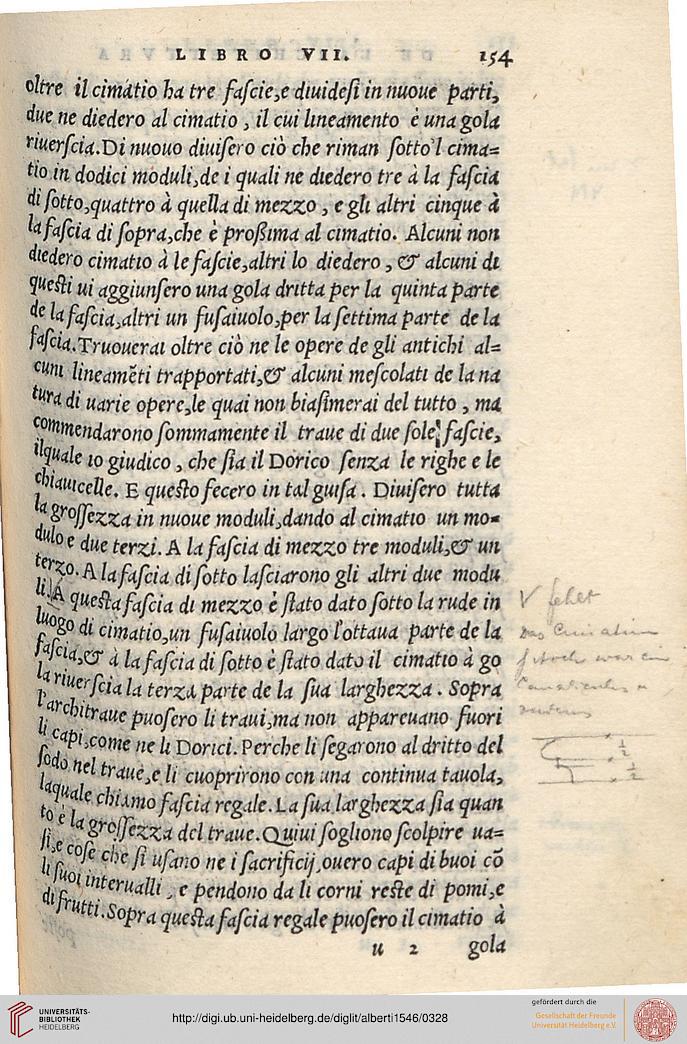 LIBRO VII. 154
oltre il cimatio ha tre fascie, e diuidesi in nuoue parti,
due ne diedero al cimatio, il cui lineamento è una gola
riuerscia. Di nuouo diuisero ciò che riman sotto'l cima=
tio in dodici moduli, de i quali ne diedero tre à la fascia
di sotto, quattro à quella di mezzo, e gli altri cinque à
la fascia di sopra, che è proßima al cimatio. Alcuni non
diedero cimatio à le fascie, altri lo diedero, & alcuni di
questi ui aggiunsero una gola dritta per la quinta parte
de la fascia, altri un fusaiuolo, per la settima parte de la
fascia. Truouerai oltre ciò ne le opere de gli antichi al=
cuni lineamẽti trapportati, & alcuni mescolati de la na
tura di uarie opere, le quai non biasimerai del tutto, ma
commendarono sommamente il traue di due sole fascie,
ilquale io giudico, che sia il Dorico senza le righe e le
chiauicelle. E questo fecero in tal guisa. Diuisero tutta
la grossezza in nuoue moduli, dando al cimatio un mo=
dulo e due terzi. A la fascia di mezzo tre moduli, & un
terzo. A la fascia di sotto lasciarono gli altri due modu
li. A questa fascia di mezzo è stato dato sotto la rude in
luogo di cimatio, un fusaiuolo largo l'ottaua parte de la
fascia, & à la fascia di sotto è stato dato il cimatio à go
la riuerscia la terza parte de la sua larghezza. Sopra
l'architraue puosero li traui, ma non appareuano fuori
li capi, come ne li Dorici. Perche li segarono al dritto del
sodo nel traue, e li cuoprirono con una continua tauola,
laquale chiamo fascia regale. La sua larghezza sia quan
to è la grossezza del traue. Quiui sogliono scolpire ua=
si, e cose che si usano ne i sacrificij, ouero capi di buoi cō
li suoi interualli, e pendono da li corni reste di pomi, e
di frutti. Sopra questa fascia regale puosero il cimatio à
u 2 gola
V fehlt
das
1/2
1/2
UNIVERSITÄTS-
BIBLIOTHEK
HEIDELBERG
http://digi.ub.uni-heidelberg.de/diglit/alberti1546/0328
gefördert durch die
Gesellschaft der Freunde
Universität Heidelberg e.V.